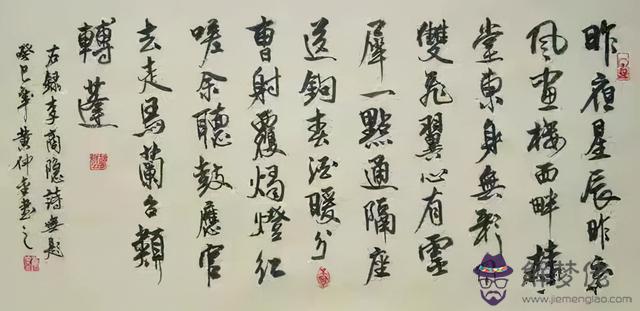 昨夜星辰昨夜
風畫樓西畔桂
堂東身無彩
雙飛翼心有靈
犀一點通隔座
送鉤春酒暖分
曹射覆燭燈紅
嗟余聽鼓應官
去走馬蘭台類
轉蓬
右錄李商隐詩無題
癸巳年黄仲書之
解梦佬
www.jiemenglao.com